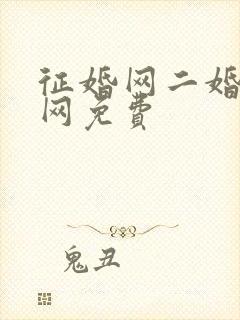 征婚网二婚
网免费
鬼丑